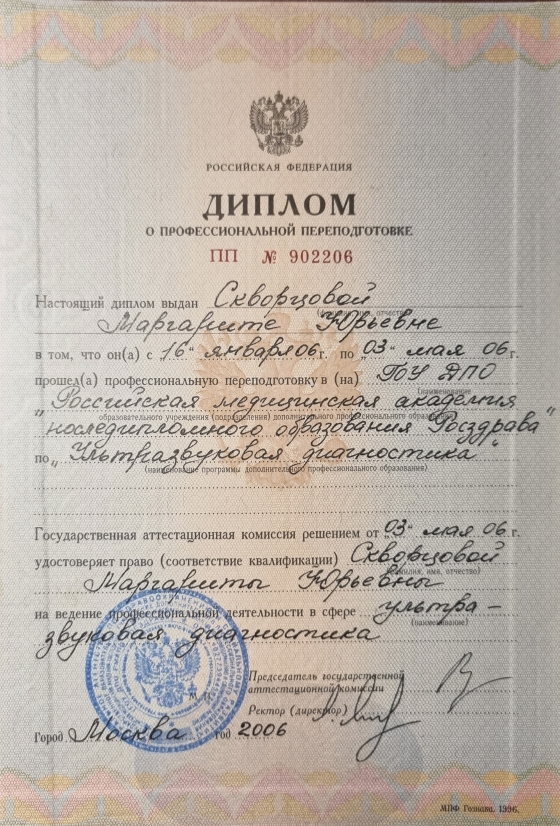 РОССИЙСКАЯ ФЕДЕРАЦИЯ
ДИПЛОМ
О ПРОФЕССИОНАЛЬНОЙ ПЕРЕПОДГОТОВКЕ
ПП № 902206
Настоящий диплом выдан Скворцовой
(фамилия, имя, отчество)
Маргарите Юрьевне
в том, что он(а) с „16“ января 06 г. по „03“ мая 06 г.
прошел(а) профессиональную переподготовку в (на) ГОУ ДПО
(наименование
„Российская медицинская академия
образовательного учреждения (подразделения) дополнительного профессионального образования)
последипломного образования Росздрава“
по „Ультразвуковая диагностика“
(наименование программы дополнительного профессионального образования)
Государственная аттестационная комиссия решением от „03“ мая 06 г.
удостоверяет право (соответствие квалификации) Скворцовой
(фамилия, имя, отчество)
Маргариты Юрьевны
на ведение профессиональной деятельности в сфере ультра-
(наименование)
звуковая диагностика
Председатель государственной
аттестационной комиссии
Ректор (директор)
Город Москва год 2006
МПФ Гознака. 1996.